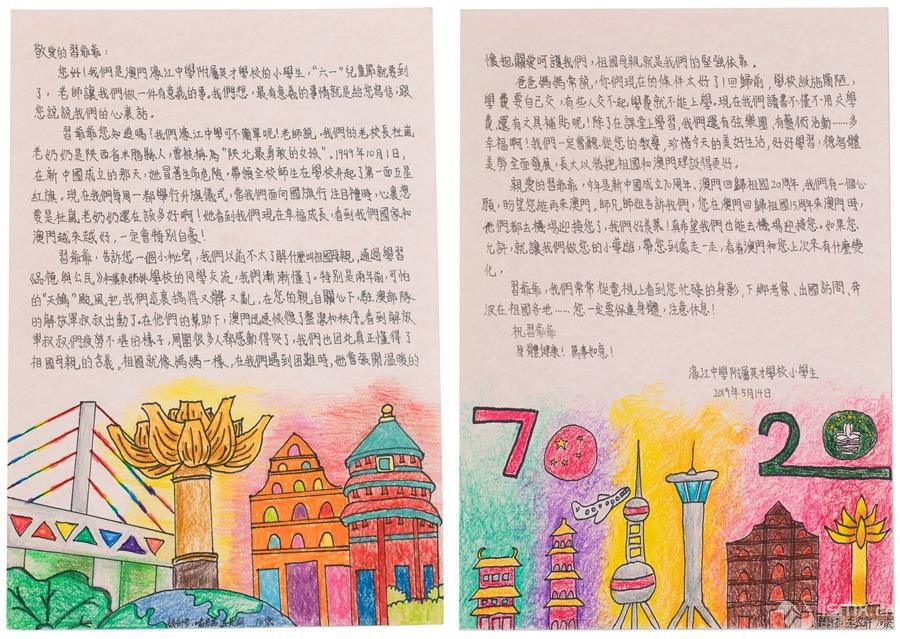 敬愛的習爺爺:
您好!我們是澳門濠江中學附屬英才學校的小學生,“六一”兒童節就要到
了,老師讓我們做一件有意義的事。我們想,最有意義的事情就是給您寫信,跟
您說說我們的心裏話。
習爺爺您知道嗎!我們濠江中學可不簡單呢!老師說,我們的老校長杜嵐
老奶奶是陝西省米脂縣人,曾被稱為“陝北最勇敢的女孩”。1949年10月1日,
在新中國成立的那天,她冒著生命危險,帶領全校師生在學校升起了第一面五星
紅旗。現在我們每周一都舉行升旗儀式,當我們面向國旗行注目禮時,心裏想
要是杜嵐老奶奶還在該多好啊!她看到我們現在幸福成長,看到我們國家和
澳門越來越好,一定會特別自豪!
習爺爺,告訴您一個小秘密,我們以前不太了解什麼叫祖國母親,通過學習
《品德與公民》和學校的同學交流,我們漸漸懂了。特別是兩年前,可怕
的“天鴿”颱風把我們這裏搞得又髒又亂,在您的親自關心下,駐澳部隊
的解放軍叔叔出動了。在他們的幫助下,澳門迅速恢復了整潔和秩序。看到解放
軍叔叔們疲勞不堪的樣子,周圍很多人都感動得哭了,我們也因此真正懂得了
祖國母親的含義。祖國就像媽媽一樣,在我們遇到困難時,她會張開溫暖的
10歲
懷抱關愛呵護我們,祖國母親就是我們的堅強依靠。
爸爸媽媽常說,你們現在的條件太好了!回歸前,學校設施簡陋,
學費要自己交,有些人交不起學費就不能上學。現在我們讀書不僅不用交學
費,還有文具補貼呢!除了在課堂上學習,我們還有弦樂團,有藝術活動……多
幸福啊!我們一定會聽從您的教導,珍惜今天的美好生活,好好學習,德智體
美勞全面發展,長大以後把祖國和澳門建設得更好。
親愛的習爺爺,今年是新中國成立70周年、澳門回歸祖國20周年,我們有一個心
願,盼望您能再來澳門。師兄師姐告訴我們,您在澳門回歸祖國15周年來澳門時,
他們都去機場迎接您了,我們好羨慕!真希望我們也能去機場迎接您。如果您
允許,就讓我們做您的小導遊,帶您到處走一走,看看澳門和您上次來有什麼變
化。
習爺爺,我們常常從電視上看到您忙碌的身影,下鄉考察、出國訪問、奔
波在祖國各地……您一定要保重身體,注意休息!
祝習爺爺
身體健康!萬事如意!
濠江中學附屬英才學校小學生
2019年5月14日
70 20